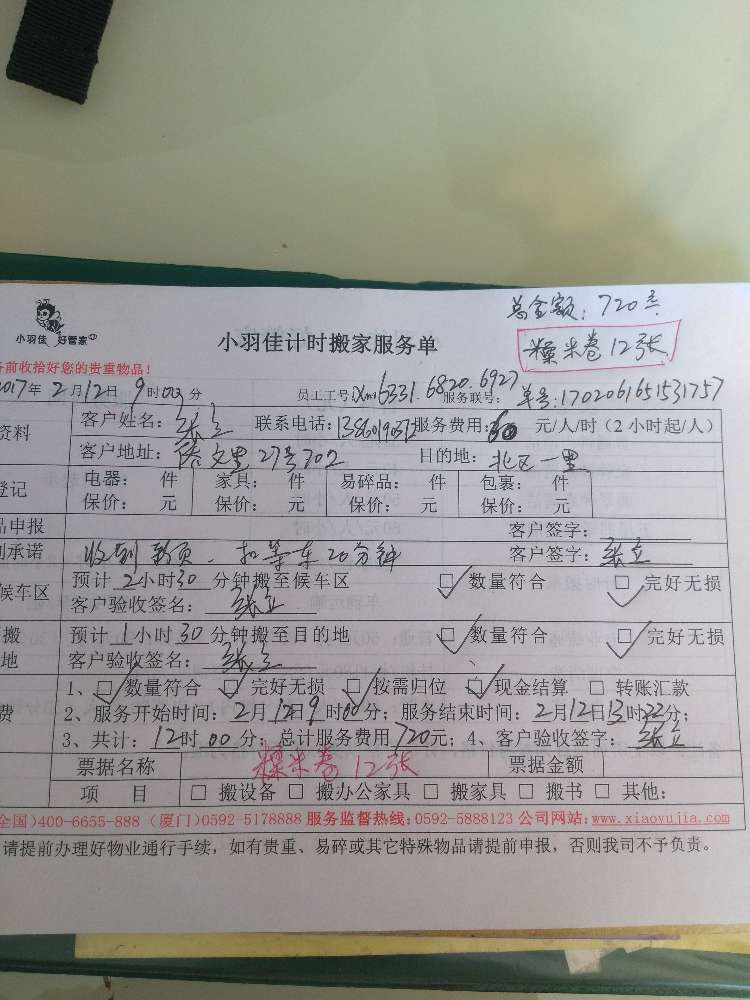 总金额：720元
糯米卷12张
小羽佳 好管家
小羽佳计时搬家服务单
前收拾好您的贵重物品！
2017年2月12日9时00分 员工工号：Xm6331.6820.6927 服务联号： 单号：170206165153 1757
资料 客户姓名：张立 联系电话：服务费用：60 元/人/时（2小时起/人）
客户地址：27号702 目的地：北区一里
登记 电器： 件 家具： 件 易碎品： 件 包裹： 件
保价： 元 保价： 元 保价： 元 保价： 元
品申报 客户签字：
承诺 收到 扣等车20分钟 客户签字：张立
候车区 预计2小时30分钟搬至候车区 ☑数量符合 ☑完好无损
客户验收签名：张立
搬 预计1小时30分钟搬至目的地 ☑数量符合 ☑完好无损
地 客户验收签名：张立
1、☑数量符合 ☑完好无损 ☑按需归位 ☑现金结算 □转账汇款
费 2、服务开始时间：2月12日9时00分；服务结束时间：2月12日13时22分；
3、共计：12时00分；总计服务费用720元；4、客户验收签字：张立
票据名称 糯米卷12张 票据金额
项 目 □搬设备 □搬办公家具 □搬家具 □搬书 □其他：
全国)400-6655-888（厦门)0592-5178888 服务监督热线：0592-5888123 公司网站：www.xiaoyujia.com
请提前办理好物业通行手续，如有贵重、易碎或其它特殊物品请提前申报，否则我司不予负责。